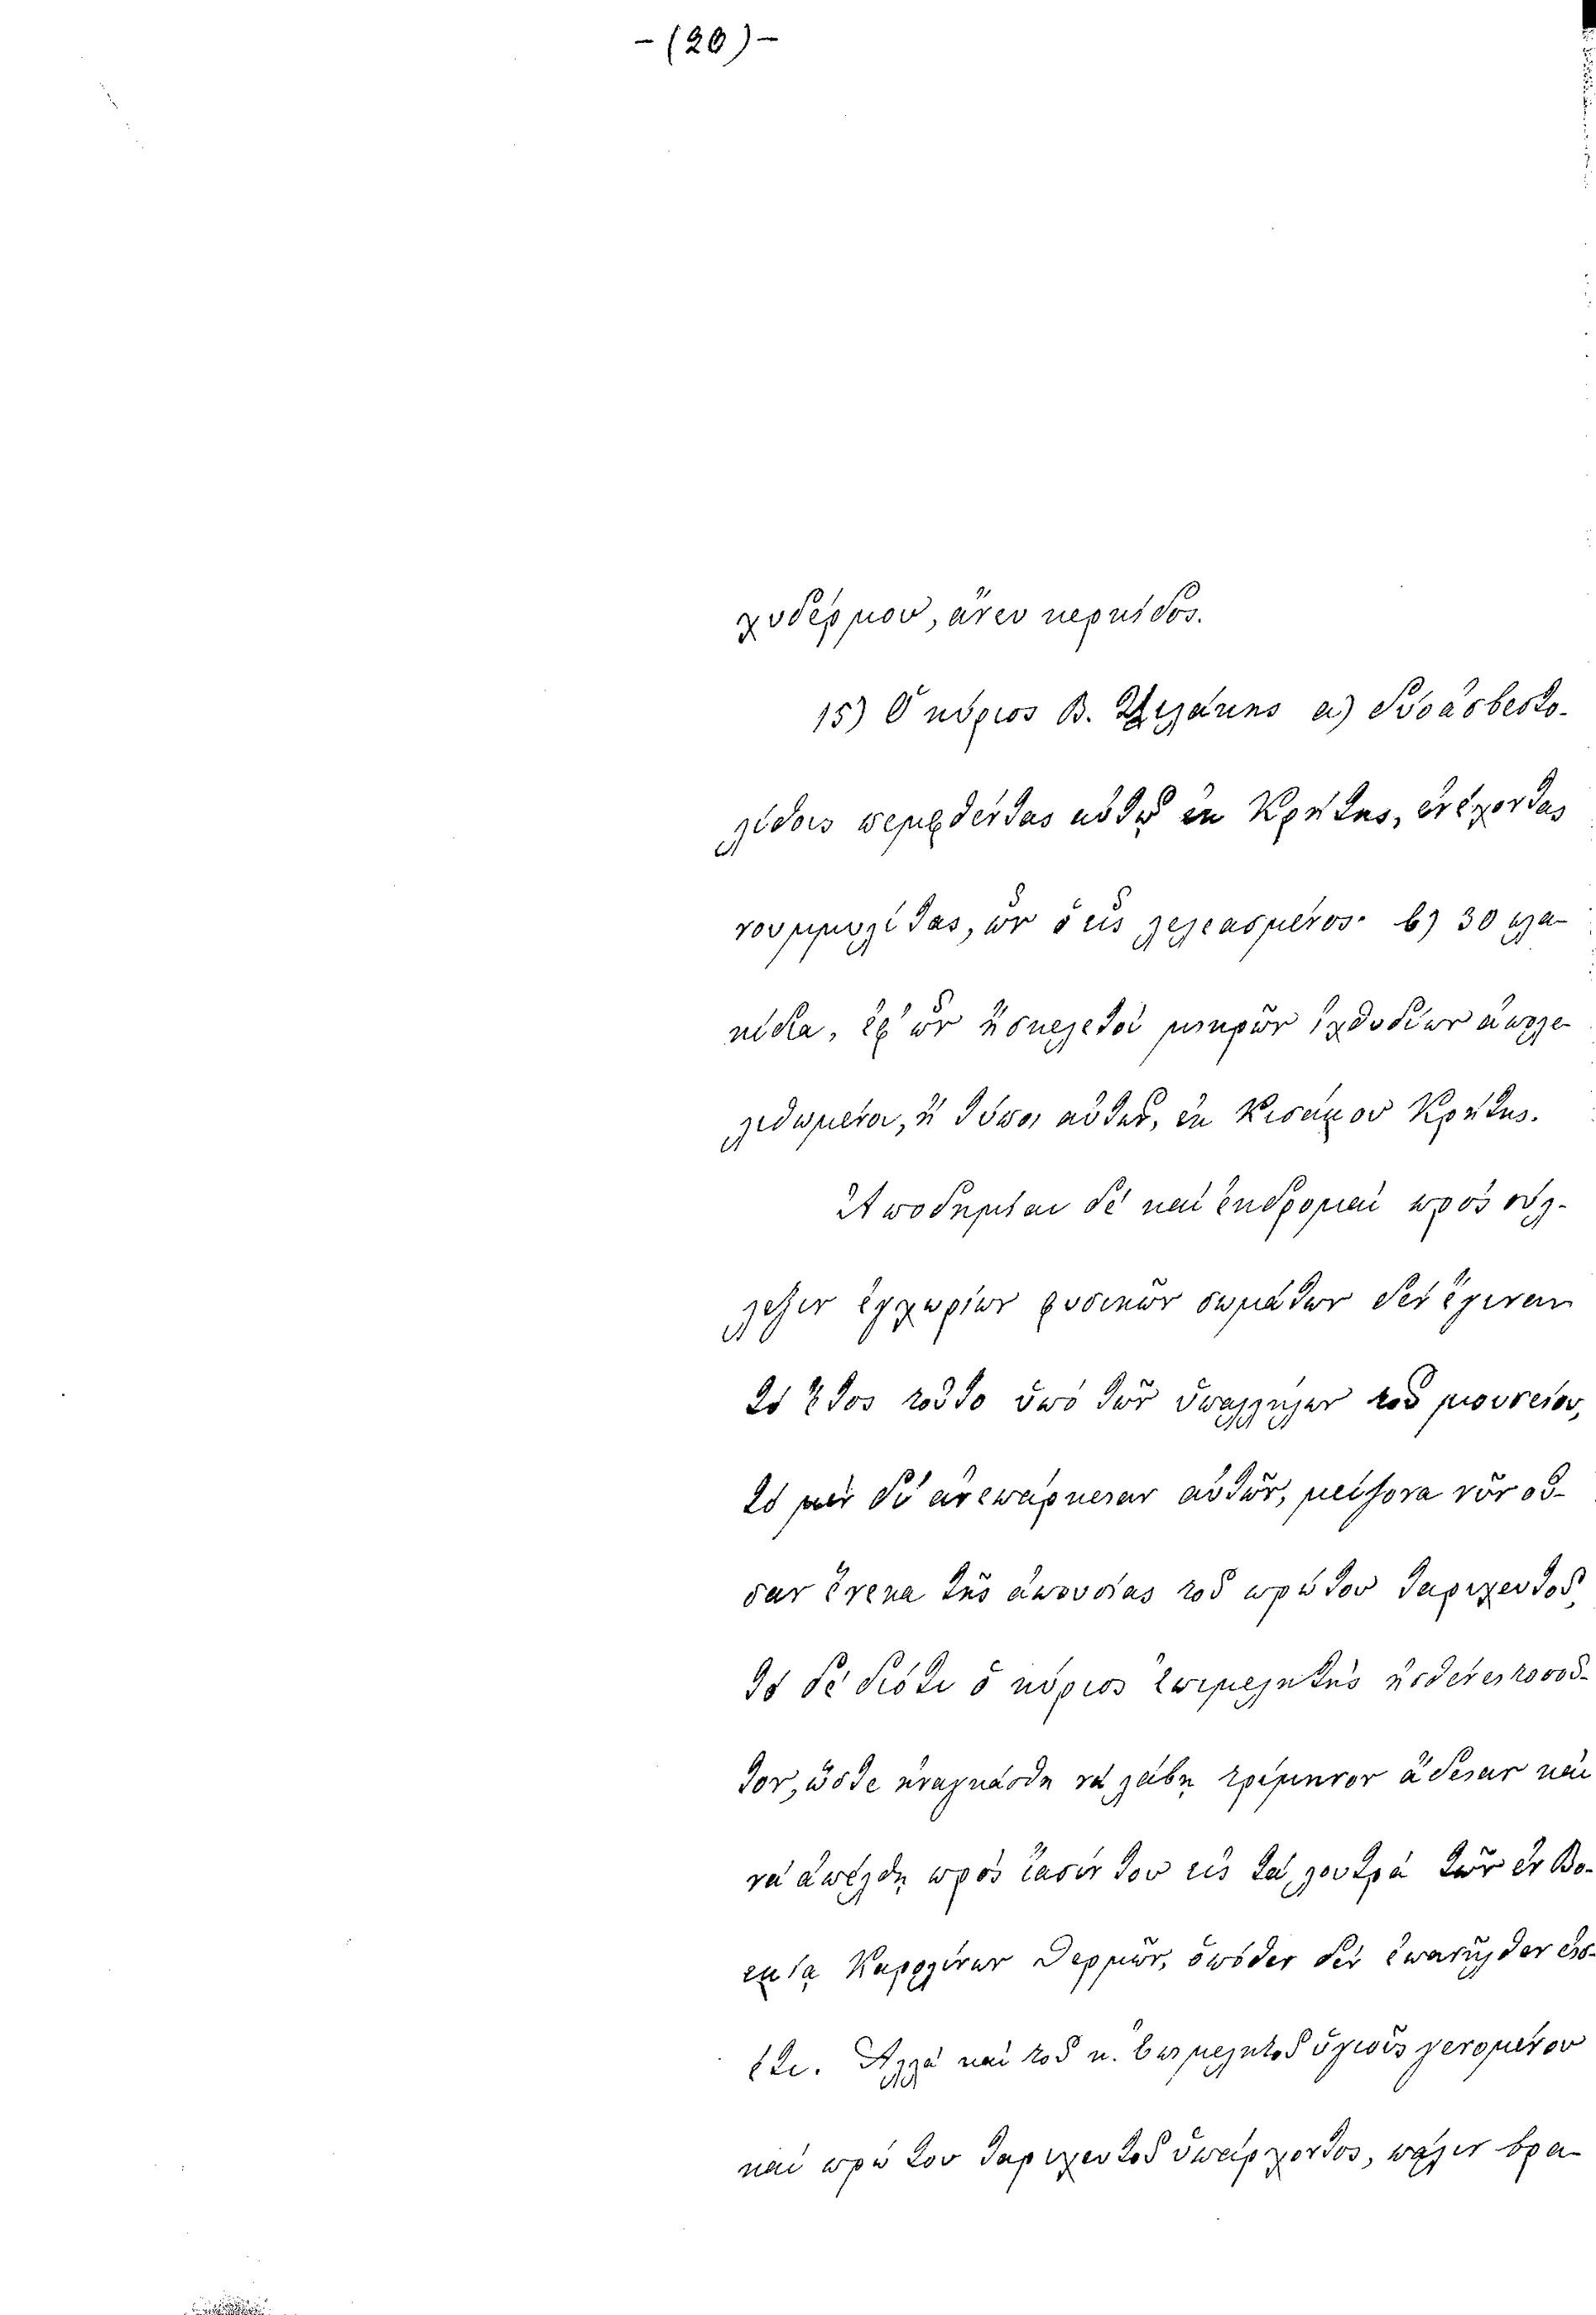 -(20)-
χυδέρμου, ἄνευ κερκίδος.
15) Ὁ κύριος Β. α) δύο ἀσβεστο-
λίθους πεμφθέντας αὐτῷ ἐκ Κρήτης, ἐνέχοντας
νουμμυλίτας, ὧν ὁ εἷς λελεασμένος· β) 30 πλα-
κίδια, ἐφ' ὧν ἢ σκελετοὶ μικρῶν ἰχθυδίων ἀπολε-
λιθωμένοι, ἢ τύποι αὐτῶν, ἐκ Κισάμου Κρήτης.
Ἀποδημίαι δὲ καὶ ἐκδρομαὶ πρὸς σύλ-
λεξιν ἐγχωρίων φυσικῶν σωμάτων δὲν ἔγιναν
τὸ ἔτος τοῦτο ὑπὸ τῶν ὑπαλλήλων τοῦ μουσείου,
τὸ μὲν δι' ἀνεπάρκειαν αὐτῶν, μείζονα νῦν οὖ-
σαν ἕνεκα τῆς ἀπουσίας τοῦ πρώτου ταριχευτοῦ,
τὸ δὲ διότι ὁ κύριος ἐπιμελητὴς ἠσθένει τοσοῦ-
τον, ὥστε ἠναγκάσθη νὰ λάβῃ τρίμηνον ἄδειαν καὶ
νὰ ἀπέλθῃ πρὸς ἴασίν του εἰς τὰ λουτρὰ τῶν ἐν Βο-
εμίᾳ Καρολίνων Θερμῶν, ὁπόθεν δὲν ἐπανῆλθεν εἰσ-
έτι. Ἀλλὰ καὶ τοῦ κ. ἐπιμελητοῦ ὑγιοῦς γενομένου
καὶ πρώτου ταριχευτοῦ ὑπάρχοντος, πάλιν βρα-